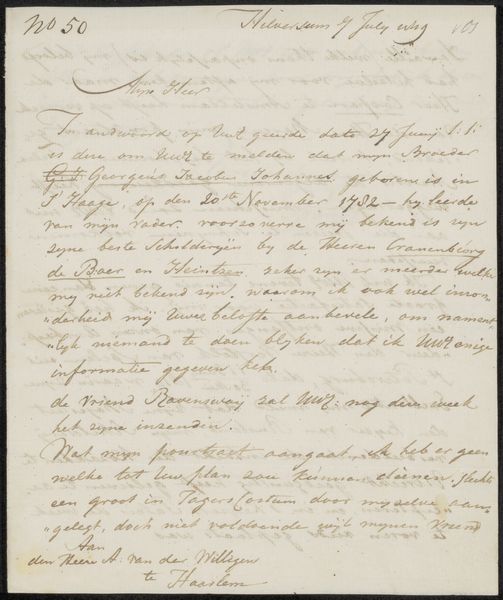 No 50
Hilversum 7 July 1819
Myn Heer
In andwoord op Uwe geerde dato 27 Junij l:l:
is dese om UwE te melden dat mijn Broeder
Georgius Jacobus Johannes geboren is in
S Haage, op den 20ste November 1782 - hy leerde
van mijn vader. voorzoverre mij bekend is zyn
zyne beste Schilderyen by de Heeren Cranenburg
de Boer en Heintzen zeker zyn er meerder welke
my niet bekend zyn. waarom ik ook wel inzon-
"derheid mij Uwe belofte aanbevele, om nament-
"lyk niemand te doen blyken dat ik UwE enige
informatie gegeven heb.
de vriend Ravenswaay zal UwE: nog dese week
het zyne inzenden.
Wat mijn pourtrait aangaat, ik heb er geen
welke tot Uw plan zou kunnen dienen, slechts
een groot in Jagers Costum door my selve aan-
"gelegt, doch niet voldoende wijl mynen vriend
Aan
den Heere A. van der Willigen
te Haarlem